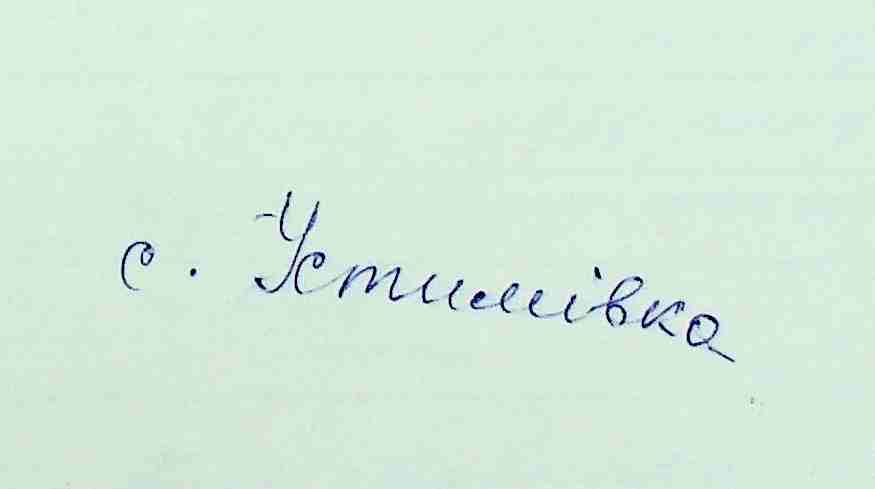 с. Устимівка